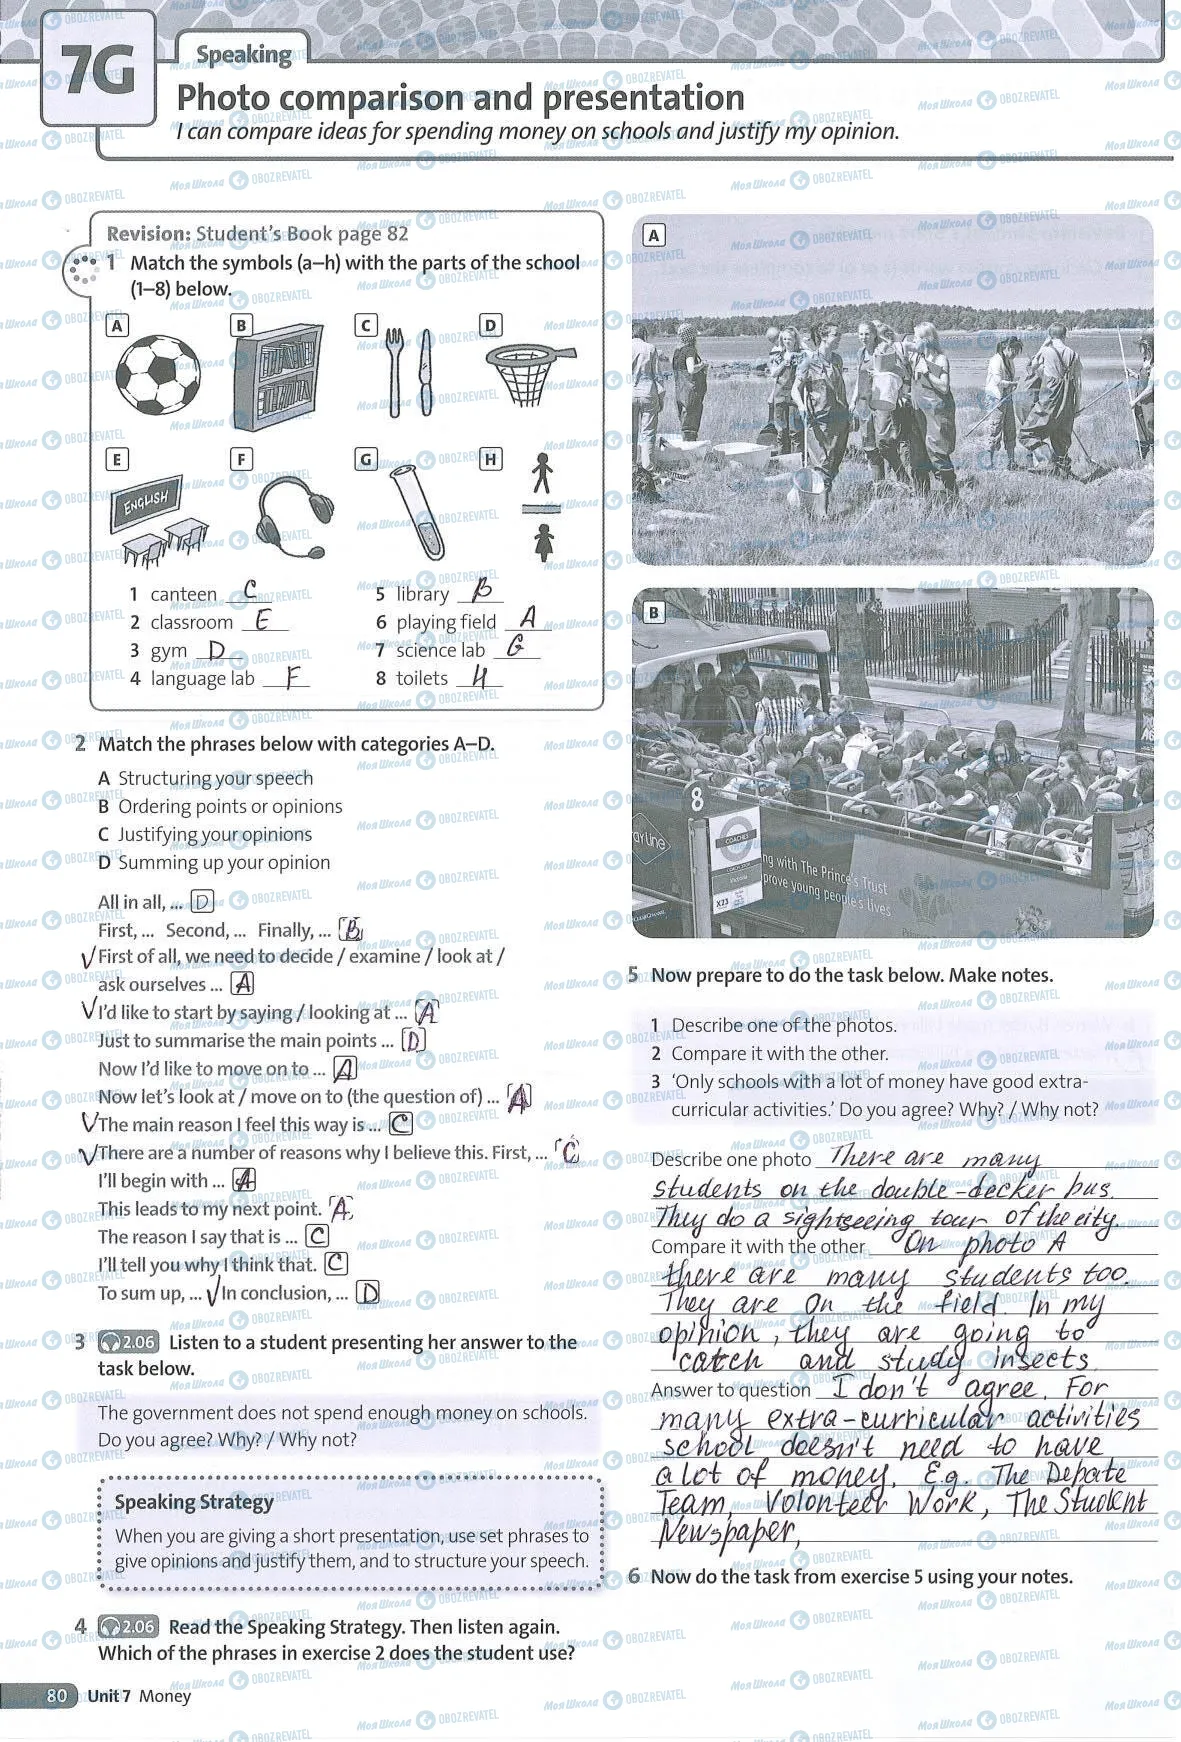 7G
Speaking
Photo comparison and presentation
I can compare ideas for spending money on schools and justify my opinion.
Revision: Student's Book page 82
1 Match the symbols (a–h) with the parts of the school
(1–8) below.
A
B
C
D
E
F
G
H
ENGLISH
1 canteen C
2 classroom E
3 gym D
4 language lab F
5 library B
6 playing field A
7 science lab G
8 toilets H
2 Match the phrases below with categories A–D.
A Structuring your speech
B Ordering points or opinions
C Justifying your opinions
D Summing up your opinion
All in all, ... D
First, ... Second, ... Finally, ... B
✓First of all, we need to decide / examine / look at /
ask ourselves ... A
✓I'd like to start by saying / looking at ... A
Just to summarise the main points ... D
Now I'd like to move on to ... A
Now let's look at / move on to (the question of) ... A
✓The main reason I feel this way is ... C
✓There are a number of reasons why I believe this. First, ... C
I'll begin with ... A
This leads to my next point. A
The reason I say that is ... C
I'll tell you why I think that. C
To sum up, ... ✓In conclusion, ... D
3 2.06 Listen to a student presenting her answer to the
task below.
The government does not spend enough money on schools.
Do you agree? Why? / Why not?
Speaking Strategy
When you are giving a short presentation, use set phrases to
give opinions and justify them, and to structure your speech.
4 2.06 Read the Speaking Strategy. Then listen again.
Which of the phrases in exercise 2 does the student use?
A
B
8
COACHES
X23
ng with The Prince's Trust
prove young people's lives
5 Now prepare to do the task below. Make notes.
1 Describe one of the photos.
2 Compare it with the other.
3 'Only schools with a lot of money have good extra-
curricular activities.' Do you agree? Why? / Why not?
Describe one photo There are many
students on the double-decker bus.
They do a sightseeing tour of the city.
Compare it with the other On photo A
there are many students too.
They are on the field. In my
opinion, they are going to
catch and study insects
Answer to question I don't agree. For
many extra-curricular activities
school doesn't need to have
a lot of money. E.g. The Debate
Team, Volonteer Work, The Student
Newspaper,
6 Now do the task from exercise 5 using your notes.
80 Unit 7 Money
Моя Школа OBOZREVATEL